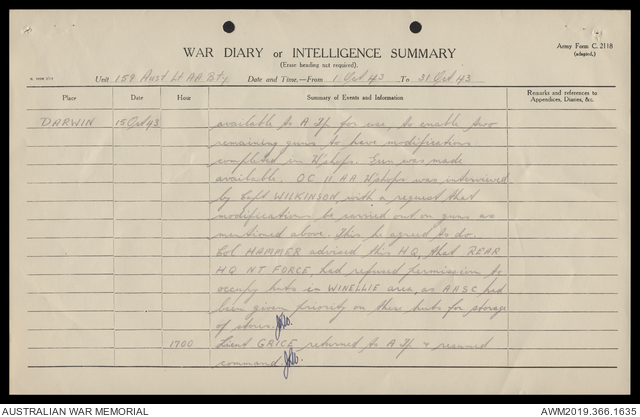 Army Form C. 2118
(adapted.)
WAR DIARY or INTELLIGENCE SUMMARY
(Erase heading not required).
Unit 159 Aust Lt AA Bty Date and Time.—From 1 Oct 43 To 31 Oct 43
Place Date Hour Summary of Events and Information Remarks and references to Appendices, Diaries, &c.
DARWIN 15 Oct 43 available to A Tp for use, to enable two
remaining guns to have modifications
completed in W'shops. Gun was made
available. OC 11 AA W'shops was interviewed
by Capt WILKINSON with a request that
modifications be carried out on guns as
mentioned above. This he agreed to do.
Col HAMMER advised this HQ, that REAR
HQ NT FORCE, had refused permission to
occupy huts in WINELLIE area, as AASC had
been given priority on these huts for storage
of stores.
1700 Lieut GRICE returned to A Tp & resumed
command
AUSTRALIAN WAR MEMORIAL AWM2019.366.1635